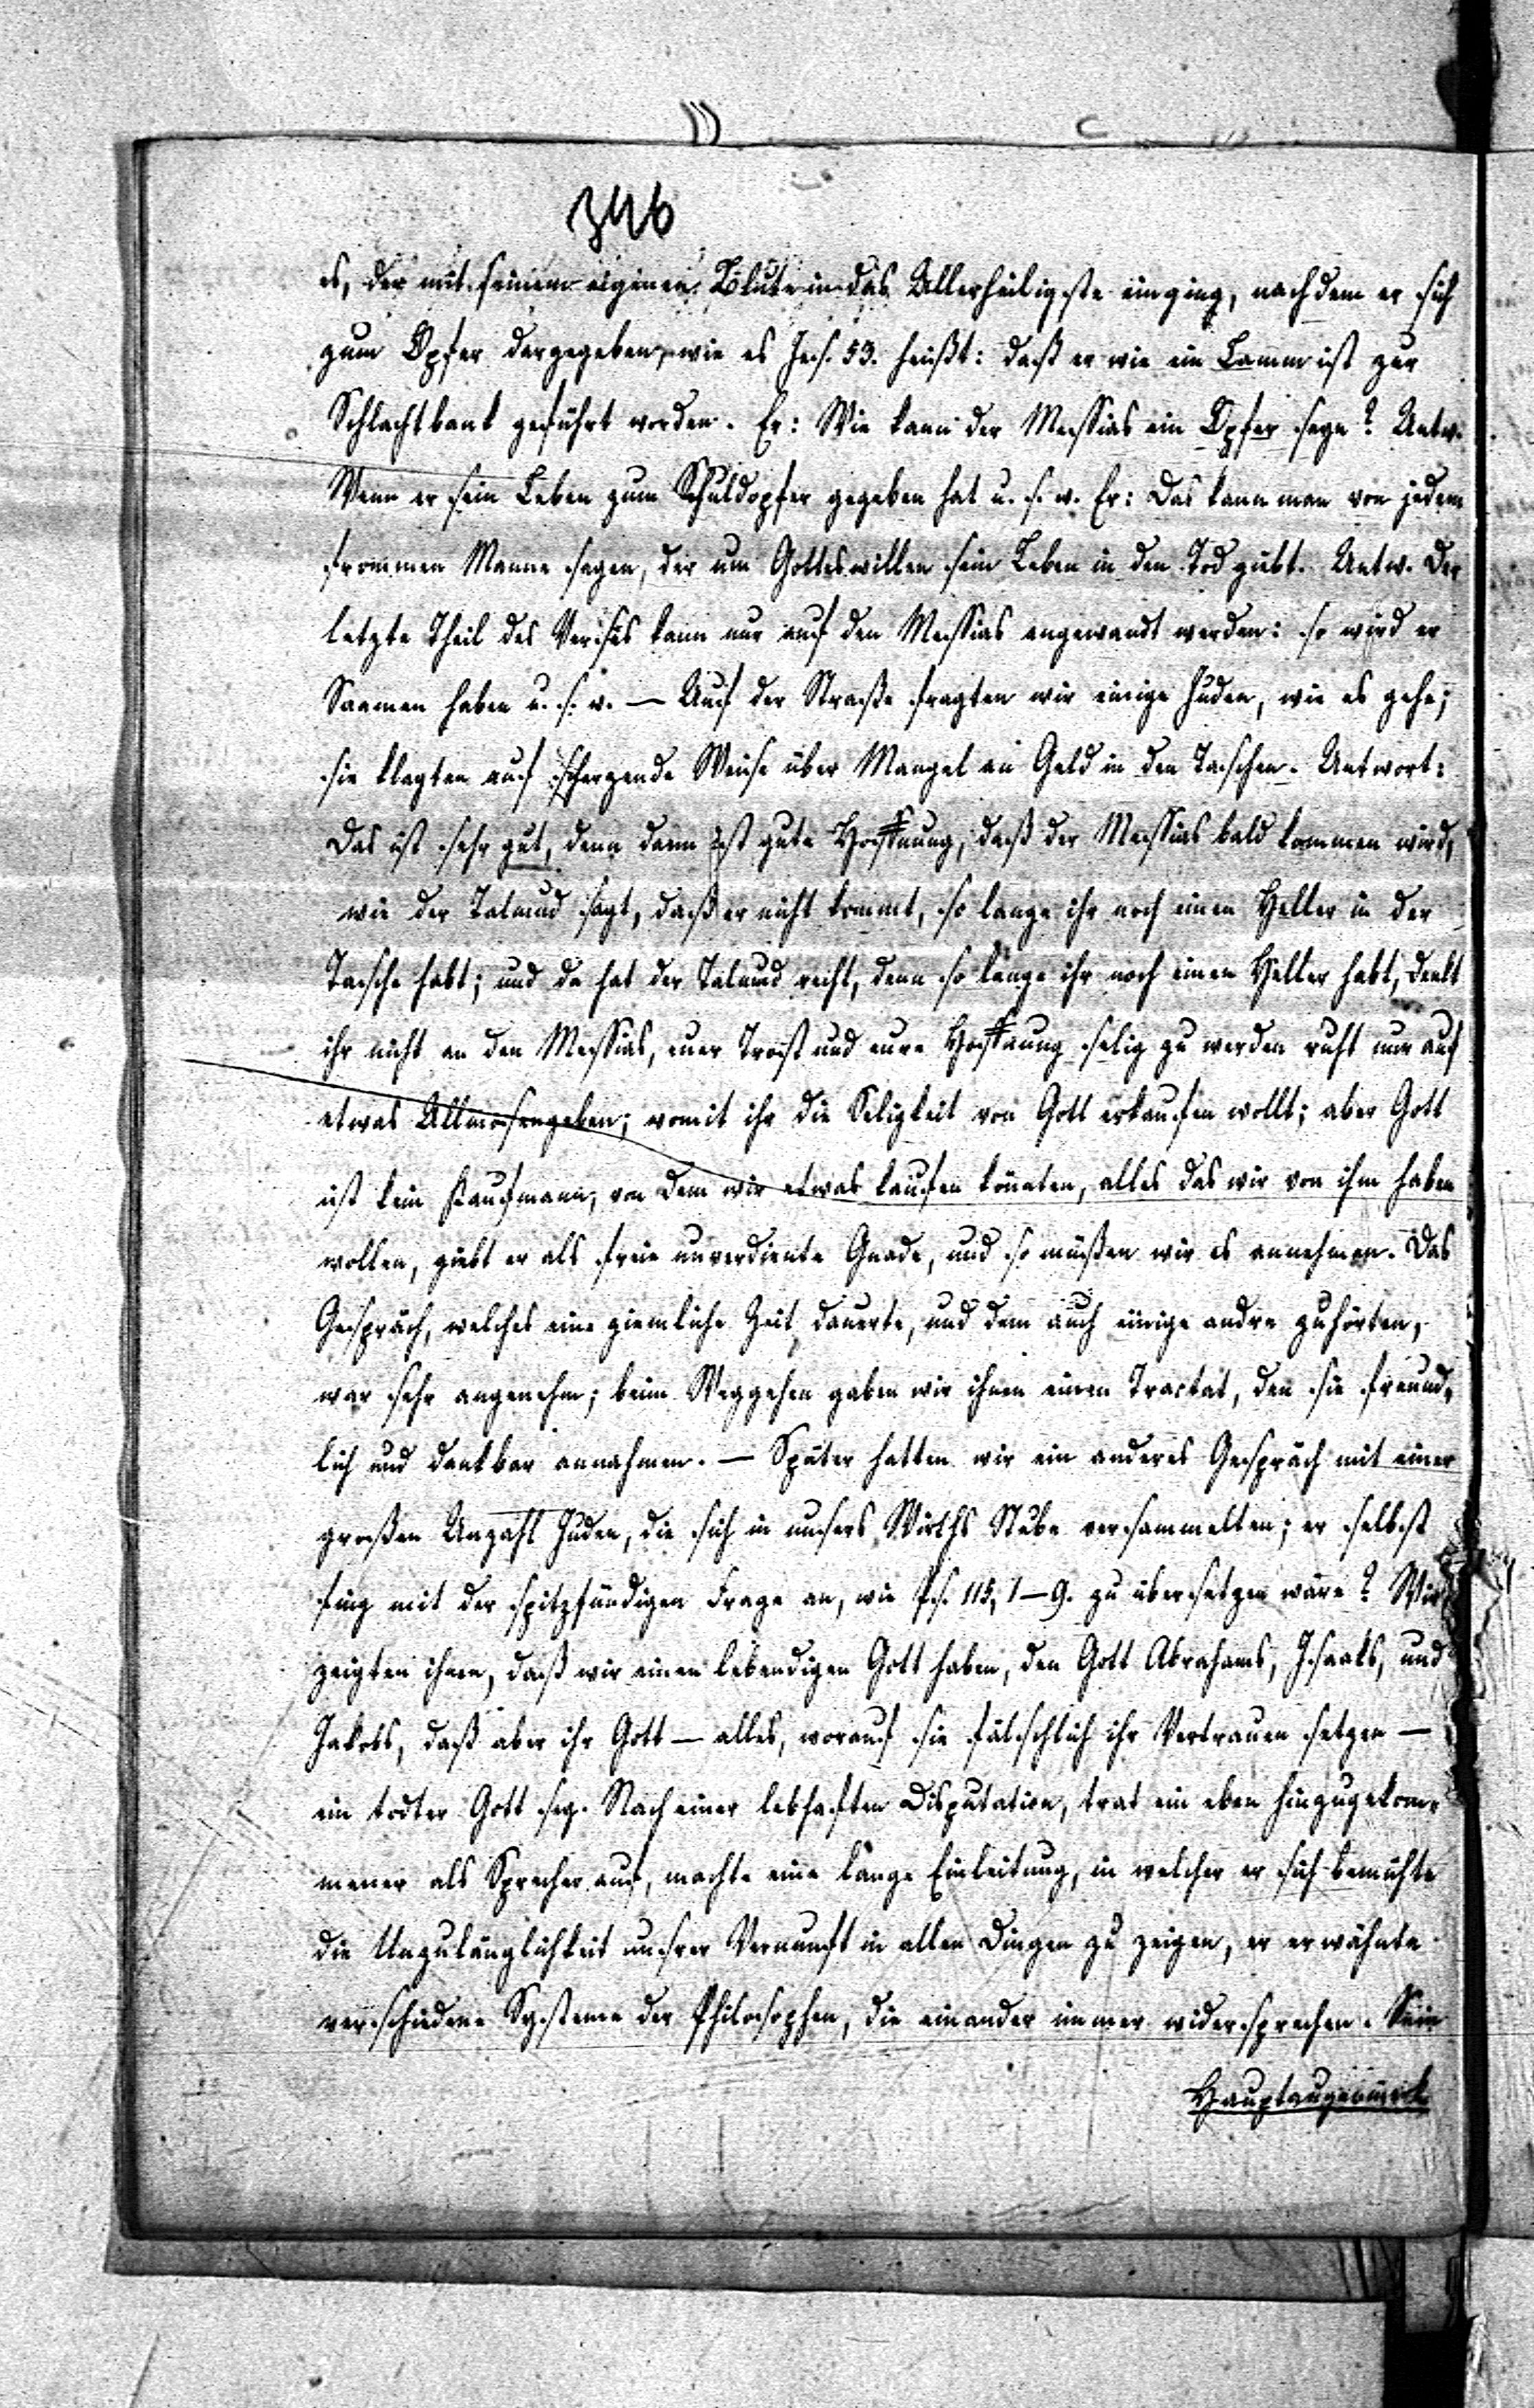 346
es, der mit seinem eignen Blute in das Allerheiligste einging, nachdem er sich
zum Opfer dargegeben, wie es Jes. 53. heißt: daß er wie ein Lamm ist zur
Schlachtbank geführt worden. Er: Wie kann der Messias ein Opfer seyn? Antw.
Wenn er sein Leben zum Schuldopfer gegeben hat u. s. w. Er: Das kann man von jedem
frommen Manne sagen, der um Gottes willen sein Leben in den Tod giebt. Antw. Der
letzte Theil des Verses kann nur auf den Messias angewandt werden: so wird er
Saamen haben u. s. w. — Auf der Straße fragten wir einige Juden, wie es gehe;
sie klagten auf scherzende Weise über Mangel an Geld in den Taschen. Antwort:
Das ist sehr gut, denn dann ist gute Hoffnung, daß der Messias bald kommen wird,
wie der Talmud sagt, daß er nicht kommt, so lange ihr noch einen Heller in der
Tasche habt; und da hat der Talmud recht, denn so lange ihr noch einen Heller habt, denkt
ihr nicht an den Messias, euer Trost und eure Hoffnung selig zu werden ruht nur auf
etwas Allmosengeben; womit ihr die Seligkeit von Gott erkaufen wollt; aber Gott
ist kein Kaufmann, von dem wir etwas kaufen könnten, alles das wir von ihm haben
wollen, giebt er als freie unverdiente Gnade, und so müßen wir es annehmen. Das
Gespräch, welches eine ziemliche Zeit dauerte, und dem auch einige andre zuhörten,
war sehr angenehm; beim Weggehen gaben wir ihnen einen Tractat, den sie freund-
lich und dankbar annahmen. — Später hatten wir ein anderes Gespräch mit einer
großen Anzahl Juden, die sich in unsers Wirths Stube versammelten; er selbst
fing mit der spitzfündigen Frage an, wie Ps. 115, 1–9. zu übersetzen wäre? Wir
zeigten ihnen, daß wir einen lebendigen Gott haben, den Gott Abrahams, Isaaks, und
Jakobs, daß aber ihr Gott — alles, worauf sie fälschlich ihr Vertrauen setzen —
ein todter Gott sey. Nach einer lebhaften Disputation, trat ein eben hinzugekom-
mener als Sprecher auf, machte eine lange Einleitung, in welcher er sich bemühte
die Unzulänglichkeit unsrer Vernunft in allen Dingen zu zeigen, er erwähnte
verschiedene Systeme der Philosophen, die einander immer widersprechen. Sein
Hauptaugenmerk